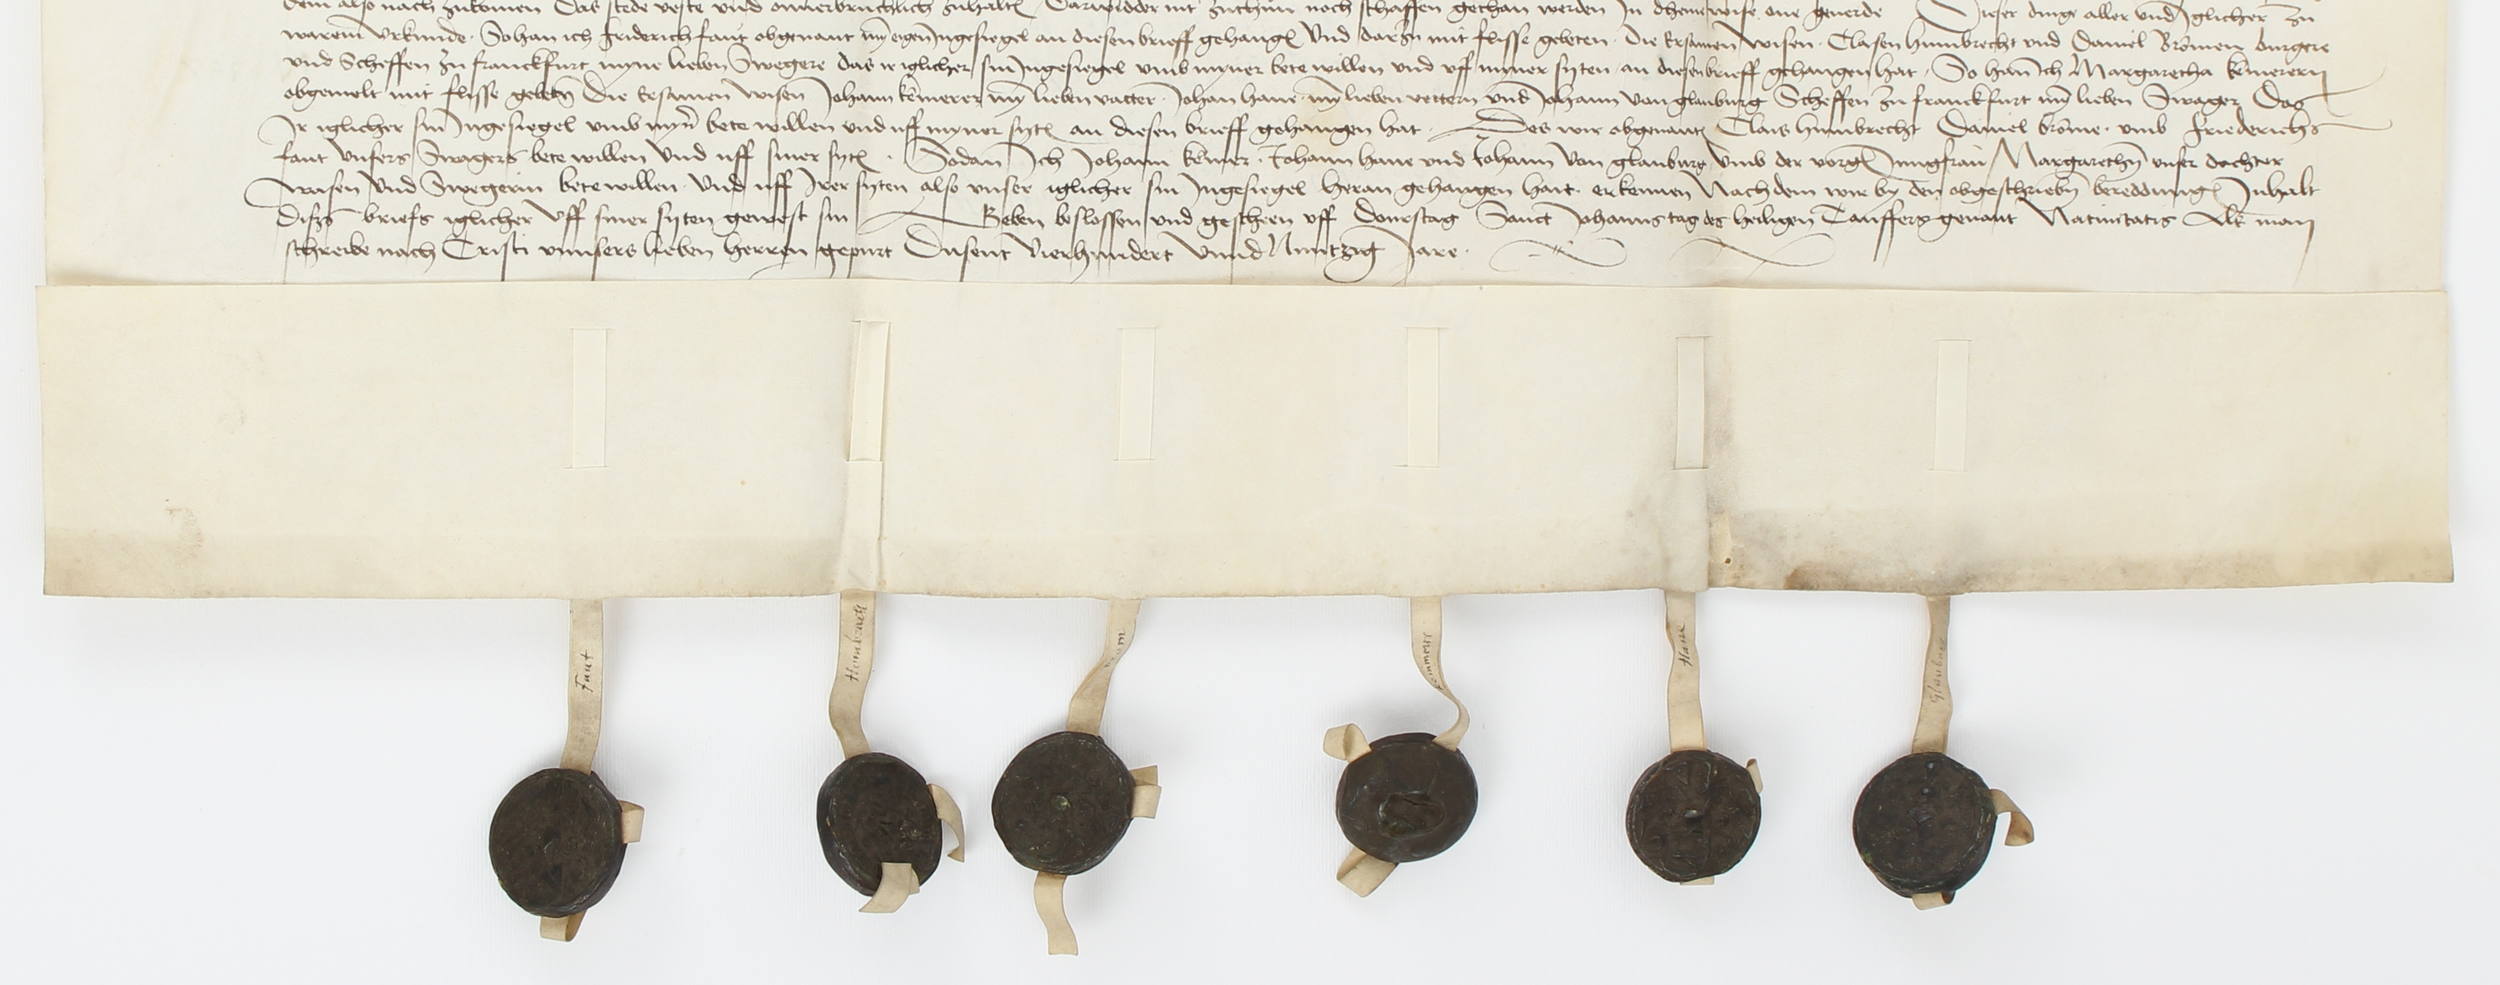 dem also nach zukomen Das stede veste und onuerbruchlich zuhalten Darwidder nit zuthun noch schaffen gethan werden In dheine wise one geuerde Dieser dinge aller und Iglicher zu
warem Urkunde · So han ich Friderich faut obgenant myn eigen Ingesiegel an diesen brieff gehangen Und darzu mit flisse gebeten · Die Ersamen Wisen · Clasen Humbrecht und Daniel Bromen burgere
und Scheffen zu franckfurt myne lieben Swegere das ir iglicher sin Ingesiegel umb myner bete willen und uff myner syten an diesen brieff gehangen hat · So han Ich Margaretha kemerern
obgemelt mit flisse gebeten Die Ersamen wisen Johann kemerer myn lieben vatter · Johan hane · myn lieben vettern und Johann von glauburg Scheffen zu franckfurt myn lieben Swager Das
Ir iglicher sin Ingesiegel umb myner bete willen und uff myner syten an diesen brieff gehangen hat · Des wir obgenanten Clais humbrecht Daniel brome · umb Friederichs
faut unsers Swagers bete willen Und uff siner syten · Sodan Ich Johann kemer · Johann hane und Johann von glauburg umb der vorgen Jungfrau Margarethen unser dochter
wasen Und Swegerin bete willen · Und uff Irer syten also unser iglicher sin Ingesiegel heran gehangen hait · erkennen Nach dem wir by den obgeschrieben bereddungen Inhalt
diszs briefs iglicher Uff siner syten gewest sin Geben beslossen und gescheen uff Donrstag Sanct Johannstag des heiligen Tauffers genant Natiuitatis Als man
schreibe nach Cristi unnsers lieben herren gepurt Dusent Vierhundert Unnd Nuntzig Jare ·
Faut
Humbracht
Hane
Glauburg